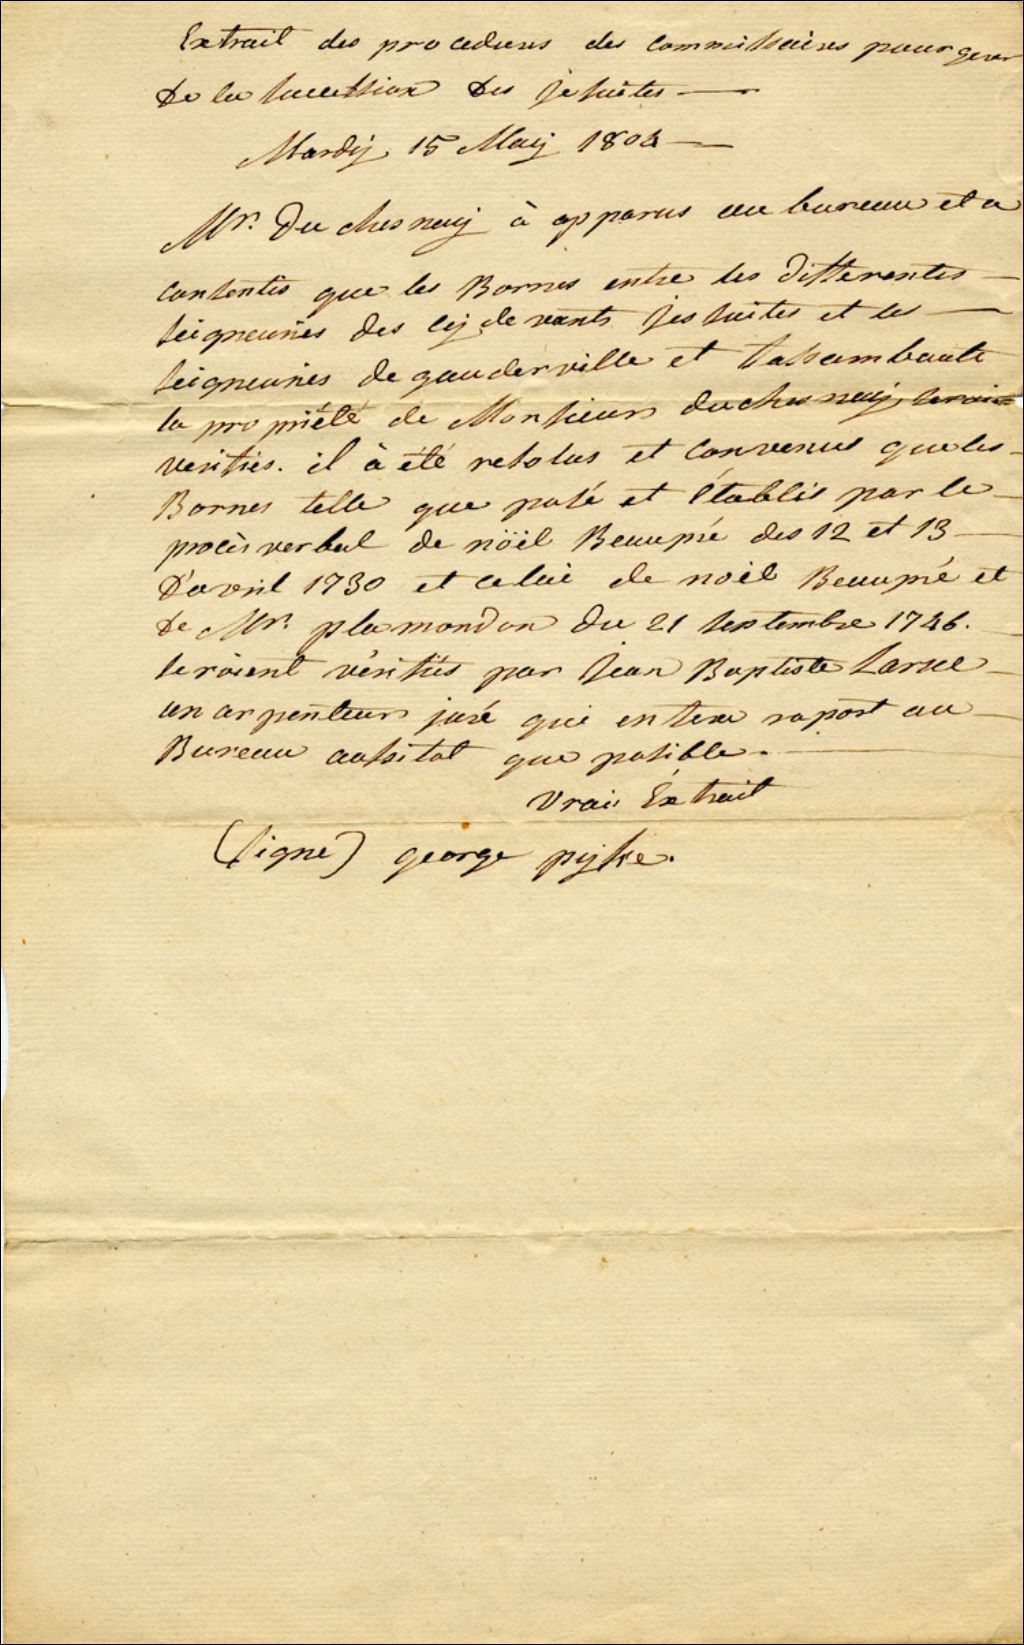 Extrait des procedures des Commissaires pour gerer
De la succession Des Jesuites —
Mardij 15 Maij 1804 —
Mr. Du chesnaij à apparus au bureau et a
Consentis que les Bornes entre les differentes —
seigneuries des Cij devants Jessuites et les —
seigneuries de gauderville et
la propriété de Monsieur duchesnaij seroient
verifiés. il à été resolus et Convenus que les —
Bornes telle que posé et Établis par le —
procès verbal de nöel Beaupré des 12 et 13 —
D'avril 1730 et celui de noel Beaupré et
de Mr. plamondon du 21 septembre 1746.
seroient vérifiés par Jean Baptiste Larue —
un arpenteur juré qui en fera raport au —
Bureau aussitot que posible. —
Vrai Extrait
(signé) george pijke.